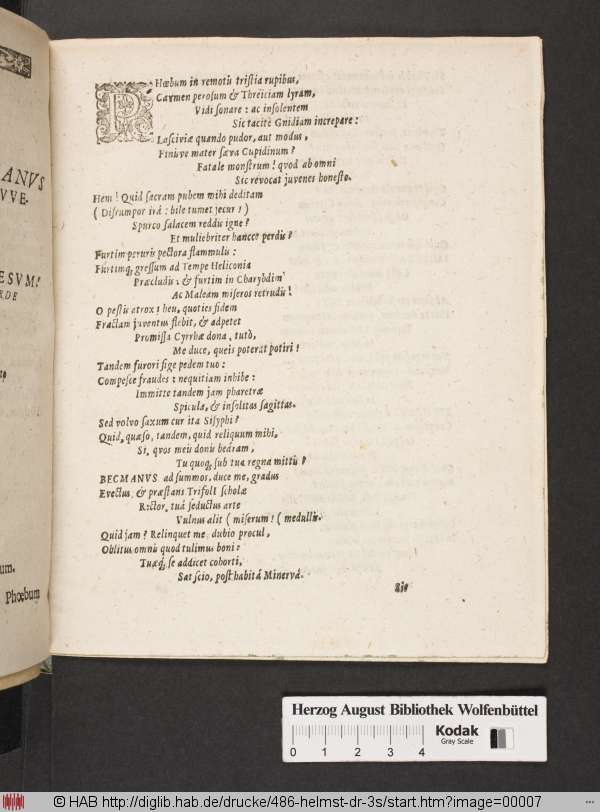 ANVS
VVE.
ESVM!
RDE
um.
Phœbum
PHœbum in remotis tristia rupibus,
Carmen perosum & Threïciam lyram,
Vidi sonare: ac insolentem
Sic tacitè Gnidiam increpare:
Lasciviæ quando pudor, aut modus,
Finiúve mater sæva Cupidinum?
Fatale monstrum! qvod ab omni
Sic revocat juvenes honesto.
Hem! Quid sacram pubem mihi deditam
(Disrumpor irâ: bile tumet jecur!)
Spurco salacem reddis igne?
Et muliebriter hancce perdis?
Furtim peruris pectora flammulis:
Furtimq; gressum ad Tempe Heliconia
Præcludis: & furtim in Charybdim
Ac Maleam miseros retrudis!
O pestis atrox; heu, quoties fidem
Fractam juventus flebit, & adpetet
Promissa Cyrrhæ dona, tutò,
Me duce, queis poterat potiri!
Tandem furori sige pedem tuo:
Compesce fraudes: nequitiam inhibe:
Immitte tandem jam pharetræ
Spicula, & insolitas sagittas.
Sed volvo saxum cur ita Sisyphi?
Quid, quæso, tandem, quid reliquum mihi,
Si, qvos meis donis bearam,
Tu quoq; sub tua regna mittis?
BECMANVS ad summos, duce me, gradus
Evectus, & præstans Trifolî scholæ
Rector, tuâ seductus arte
Vulnus alit (miserum!) medullis.
Quid jam? Relinquet me, dubio procul,
Oblitus omnis quod tulimus boni:
Tuæq; se addicet cohorti,
Sat scio, post habitâ Minervâ.
Sic
Herzog August Bibliothek Wolfenbüttel
0 1 2 3 4
Kodak
Gray Scale
© HAB http://diglib.hab.de/drucke/486-helmst-dr-3s/start.htm?image=00007